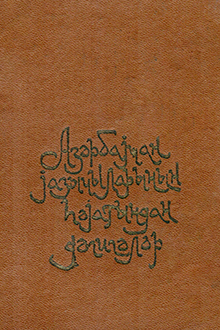 Азәрбајҹан
јазычыларынын
һәјатындан
дәгигәләр